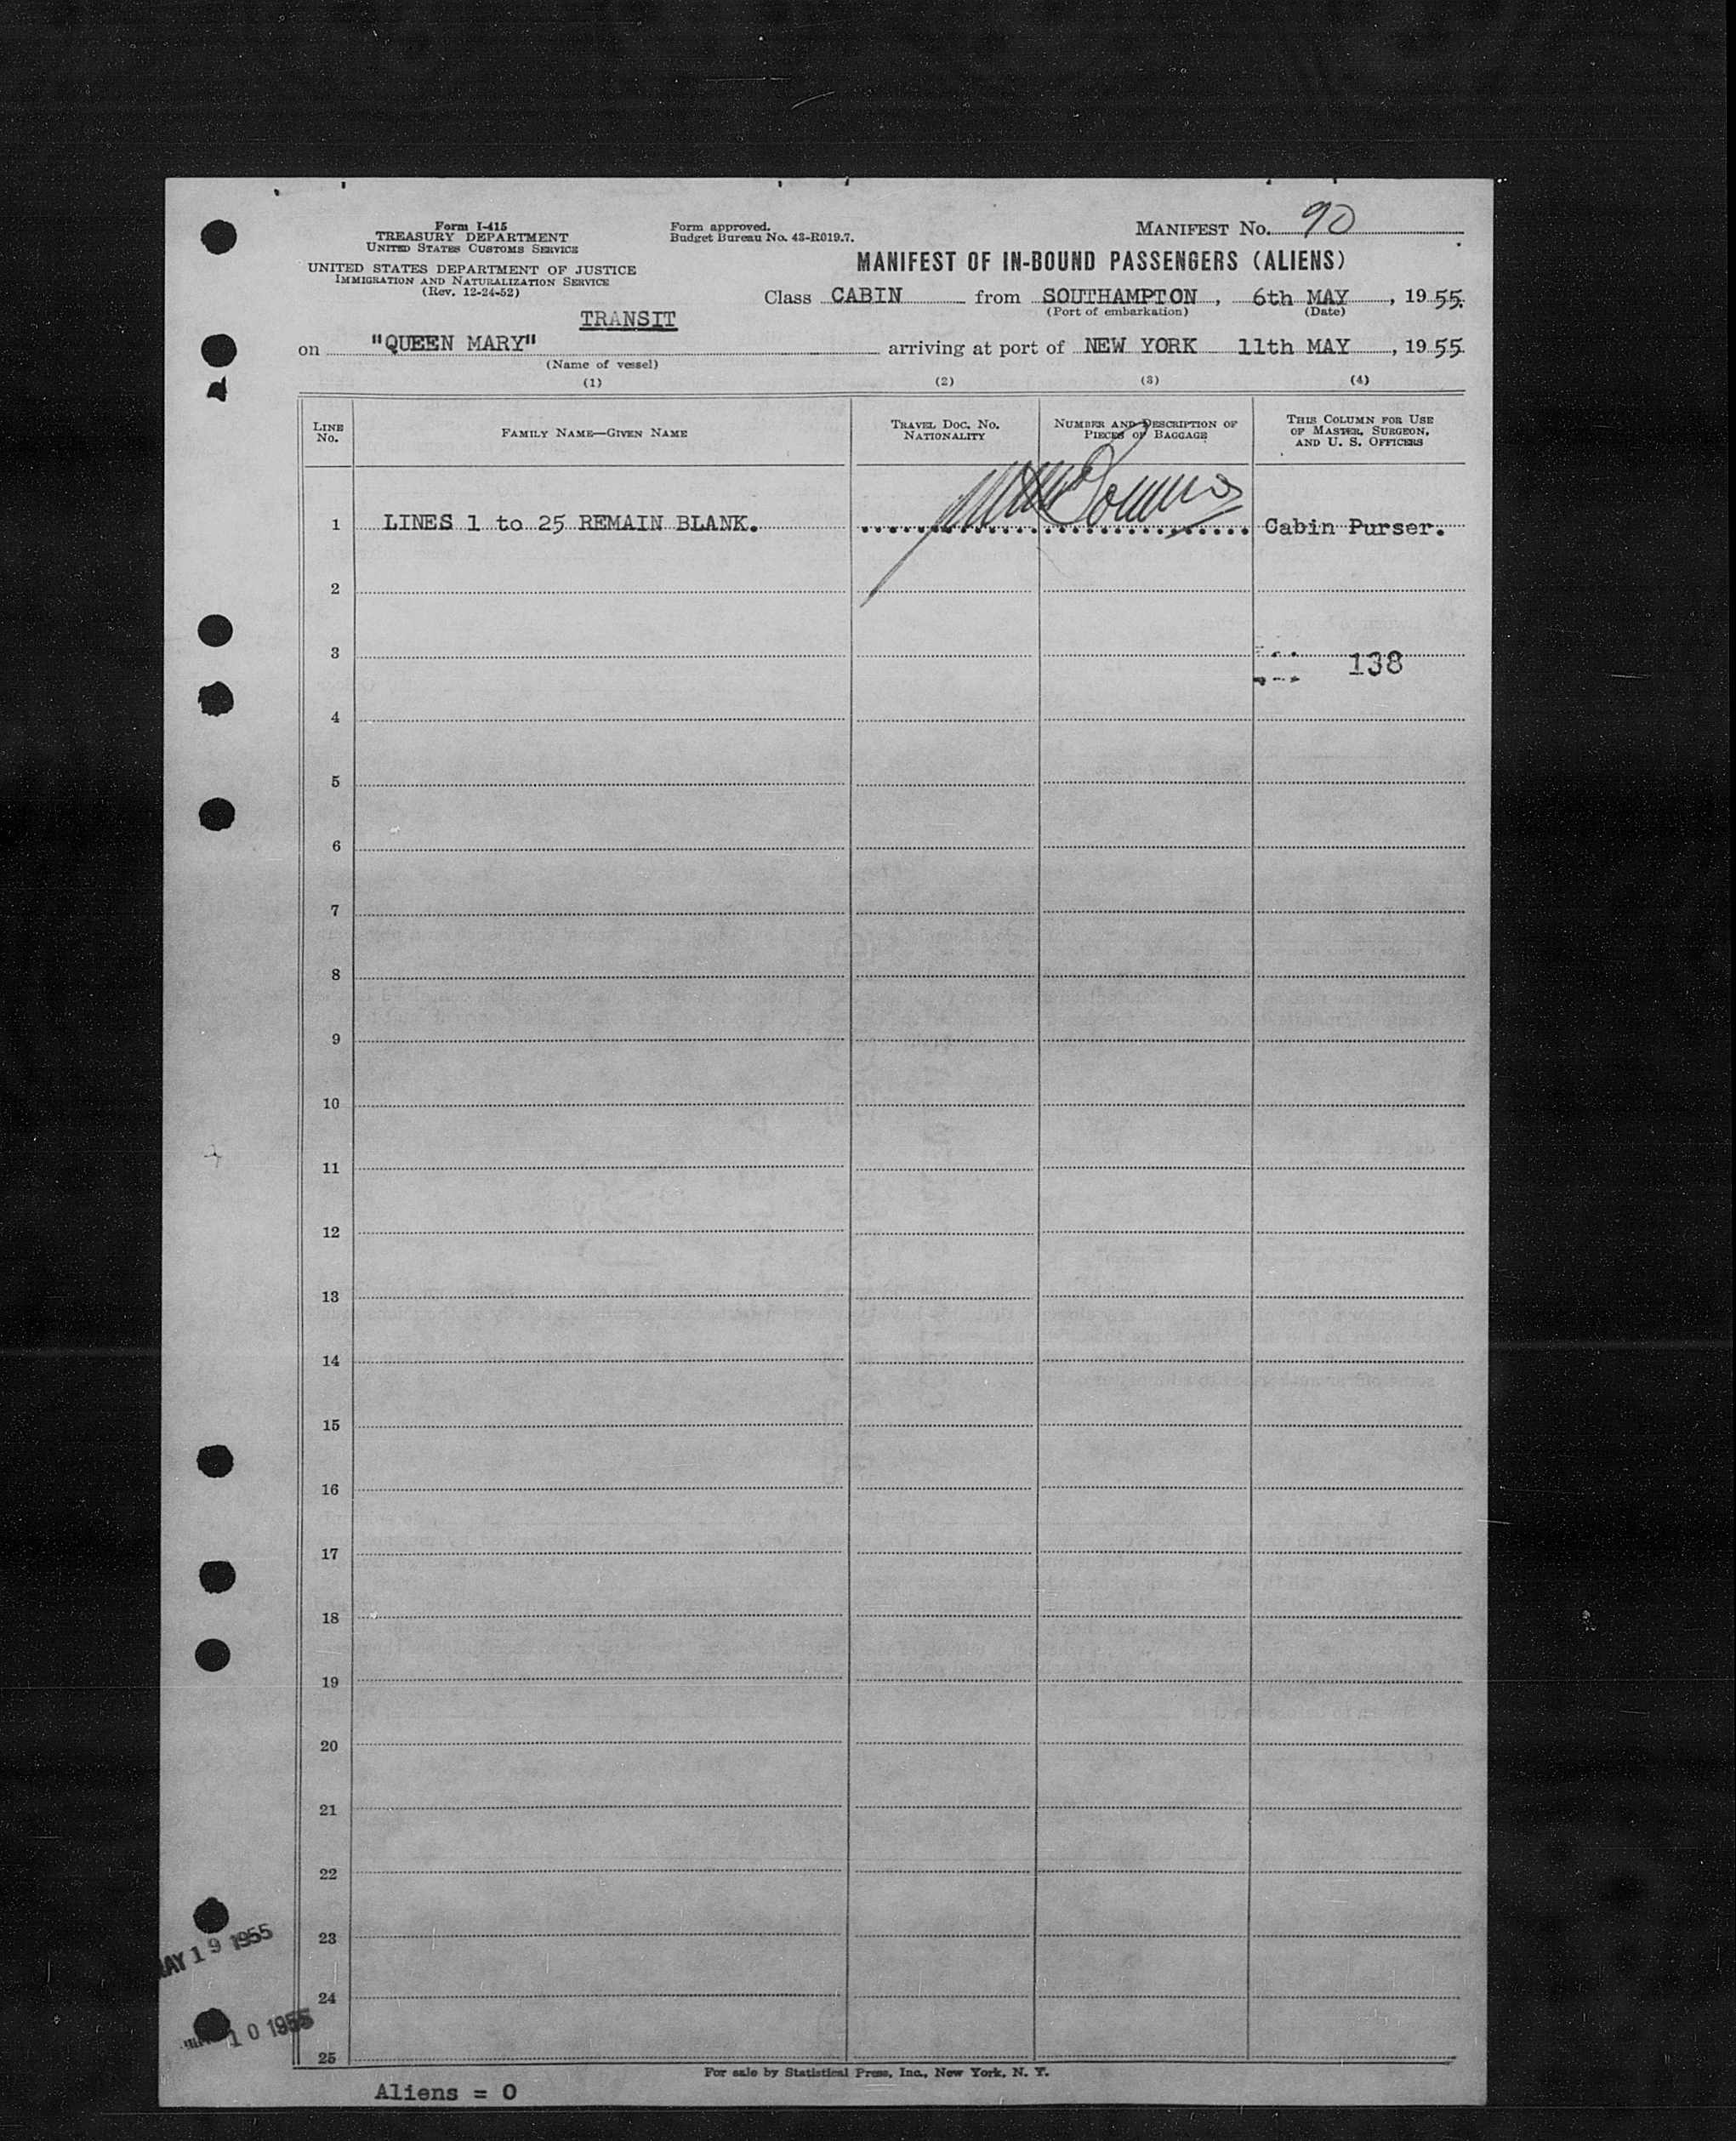 Form I-415
TREASURY DEPARTMENT
UNITED STATES CUSTOMS SERVICE
UNITED STATES DEPARTMENT OF JUSTICE
IMMIGRATION AND NATURALIZATION SERVICE
(Rev. 12-24-52)
Form approved.
Budget Bureau No. 43-R019.7.
MANIFEST No. 90
MANIFEST OF IN-BOUND PASSENGERS (ALIENS)
Class CABIN from SOUTHAMPTON, 6th MAY, 1955.
(Port of embarkation) (Date)
TRANSIT
on "QUEEN MARY" arriving at port of NEW YORK 11th MAY, 1955.
(Name of vessel)
(1) (2) (3) (4)
LINE No. FAMILY NAME—GIVEN NAME TRAVEL DOC. NO. NATIONALITY NUMBER AND DESCRIPTION OF PIECES OF BAGGAGE THIS COLUMN FOR USE OF MASTER, SURGEON, AND U. S. OFFICERS
1 LINES 1 to 25 REMAIN BLANK. Cabin Purser.
2
3 138
4
5
6
7
8
9
10
11
12
13
14
15
16
17
18
19
20
21
22
23
24
25
MAY 19 1955
10 1955
For sale by Statistical Press, Inc., New York, N. Y.
Aliens = 0